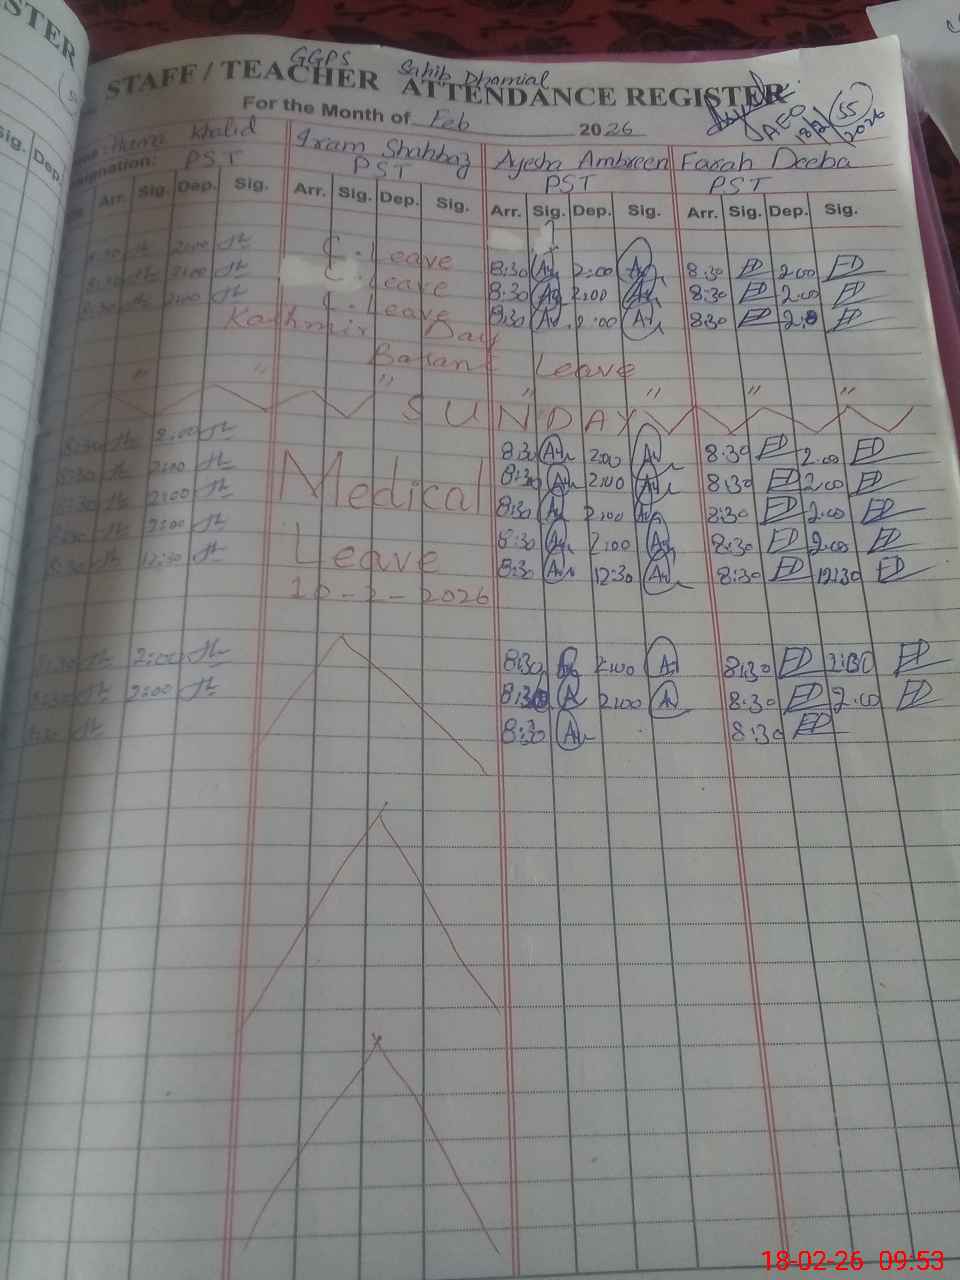 GGPS Sahib Dhamial
STAFF / TEACHER ATTENDANCE REGISTER
For the Month of Feb 2026
AEO 18/2/2026 55
Huma Khalid Iram Shahbaz Ayesha Ambreen Farah Deeba
PST PST PST PST
Arr. Sig. Dep. Sig. Arr. Sig. Dep. Sig. Arr. Sig. Dep. Sig. Arr. Sig. Dep. Sig.
8:30 2:00 C. Leave 8:30 2:00 8:30 FD 2.00 FD
8:30 2:00 C. Leave 8:30 2:00 8:30 FD 2.00 FD
8:30 2:00 C. Leave 8:30 2:00 8:30 FD 2.0 FD
Kashmir Day
Basant Leave
" " " " " " "
SUNDAY
8:30 2:00 8:30 2:00 8:30 FD 2.00 FD
8:30 2:00 Medical 8:30 2:00 8:30 FD 2.00 FD
8:30 2:00 8:30 2:00 8:30 FD 2.00 FD
8:30 2:00 Leave 8:30 2:00 8:30 FD 2.00 FD
8:30 12:30 8:30 12:30 8:30 FD 12:30 FD
2-2026
8:30 2:00 8:30 2:00 8:30 FD FD
8:30 2:00 8:30 2:00 8:30 FD 2.00 FD
8:30 8:30 8:30 FD
18-02-26 09:53